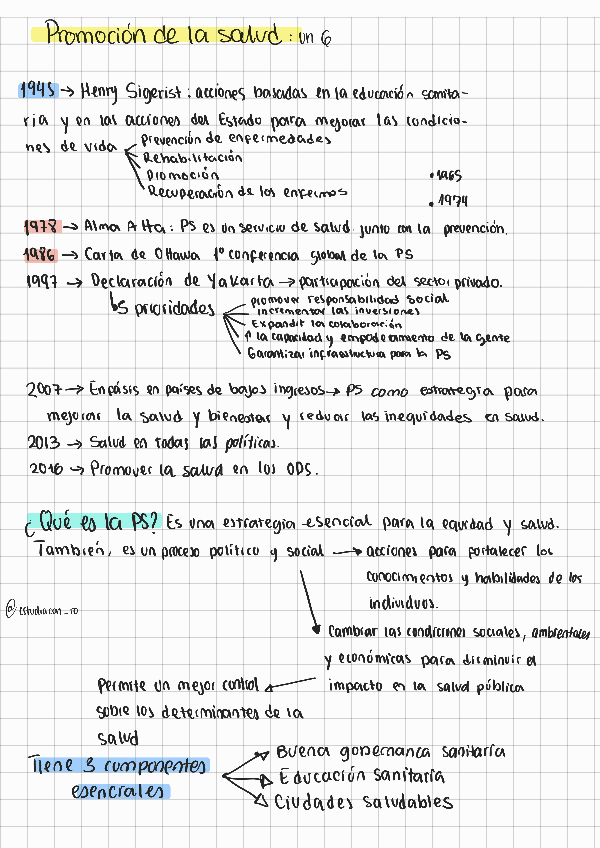 Promoción de la salud: un 6
1945 → Henry Sigerist: acciones basadas en la educación sanita-
ria y en las acciones del Estado para mejorar las condicio-
nes de vida
Prevención de enfermedades
Rehabilitación
Promoción
Recuperación de los enfermos
• 1965
• 1974
1978 → Alma Atta: PS es un servicio de salud junto con la prevención.
1986 → Carta de Ottawa 1º conferencia global de la PS
1997 → Declaración de Yakarta → participación del sector privado.
↳ 5 prioridades
promover responsabilidad social
incrementar las inversiones
Expandir la colaboración
↑ la capacidad y empoderamiento de la gente
Garantizar infraestructura para la PS
2007 → Enfásis en países de bajos ingresos → PS como estrategia para
mejorar la salud y bienestar y reducir las inequidades en salud.
2013 → Salud en todas las políticas.
2016 → Promover la salud en los ODS.
¿Qué es la PS? Es una estrategia esencial para la equidad y salud.
También, es un proceso político y social → acciones para fortalecer los
conocimientos y habilidades de los
individuos.
@estudiaran_ro
Cambiar las condiciones sociales, ambientales
y económicas para disminuir el
impacto en la salud pública
Permite un mejor control
sobre los determinantes de la
salud
Tiene 3 componentes
esenciales
Buena gobernanza sanitaria
Educación sanitaria
Ciudades saludables